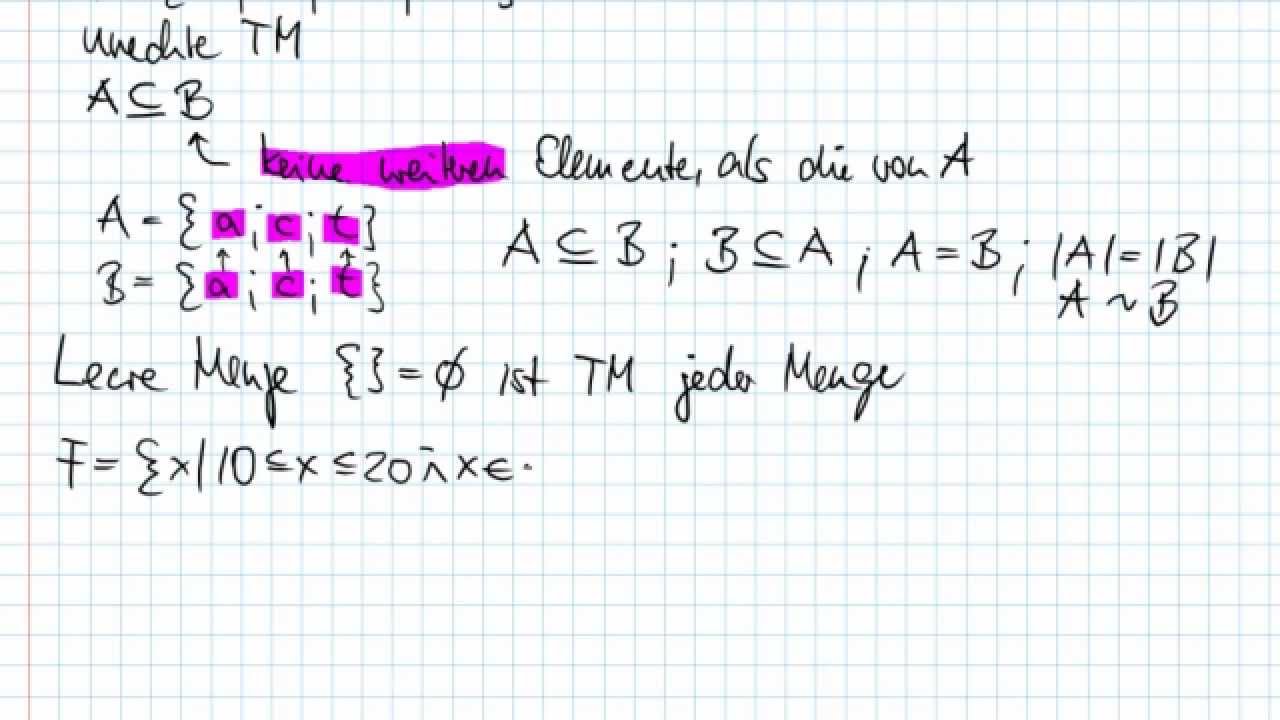 unechte TM
A ⊆ B
keine weiteren Elemente, als die von A
A = {a; c; t}
B = {a; c; t}
A ⊆ B ; B ⊆ A ; A = B ; |A| = |B|
A ~ B
Leere Menge {} = ∅ ist TM jeder Menge
F = {x | 10 ≤ x ≤ 20 ∧ x ∈